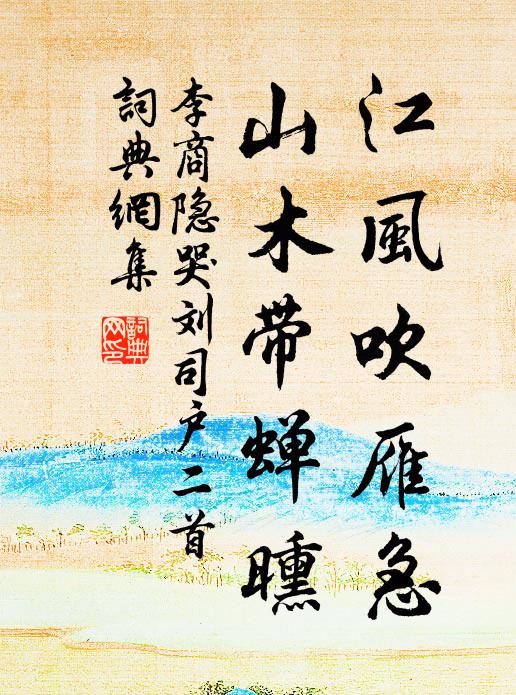 江風吹雁急
山木带蝉曛
李商隐哭刘司户二首
詞典網集
詞典
网印